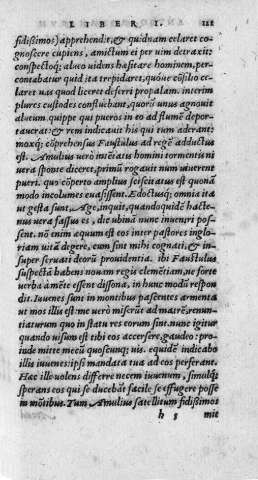 LIBER I. 111
fidissimos) apprehendit, & quidnam celaret co
gnoscere cupiens, amictum ei per uim detraxit:
conspectoq; alueo uidens hæsitare hominem, per-
contabatur quid ita trepidaret, quóue cōsilio ce-
laret uas quod liceret deferri propalam. interim
plures custodes confluebant, quorū unus agnouit
alueum. quippe qui pueros in eo ad flumē depor-
tauerat: & rem indicauit his qui tum aderant:
moxq; cōprehensus Faustulus ad regē adductus
est. Amulius uerò intētatis homini tormentis ni
uera sponte diceret, primū rogauit num uiuerent
pueri. quo cōperto amplius sciscitatus est quonā
modo incolumes euasissent. Edoctusq; omnia ita
ut gesta sunt, Age, inquit, quandoquidē hacte-
nus uera fassus es, dic ubinā nunc inueniri pos
sent. nō enim æquum est eos inter pastores inglo-
riam uitā degere, cum sint mihi cognati, & in-
super seruati deorū prouidentia. ibi Faustulus
suspectā habens non eam regis clemētiam, ne forte
uerba à mēte essent dissona, in hunc modū respon
dit. Iuuenes sunt in montibus pascentes armenta
ut mos illis est: me uerò miserūt ad matrē, renun-
tiaturum quo in statu res eorum sint. nunc igitur
quando uisum est tibi eos accersere, gaudeo: pro-
inde mitte mecū quoscunq; uis. equidē indicabo
illis iuuenes: ipsi mandata tua ad eos perferant.
Hæc ille uolens differre necem iuuenum, simulq;
sperans eos qui se ducebāt facile se effugere posse
in mōtibus. Tum Amulius satellitum fidissimos
h 5 mit